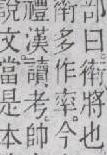 部曰䘙將也
䘙多作率今
禮漢讀考帥
說文當是本